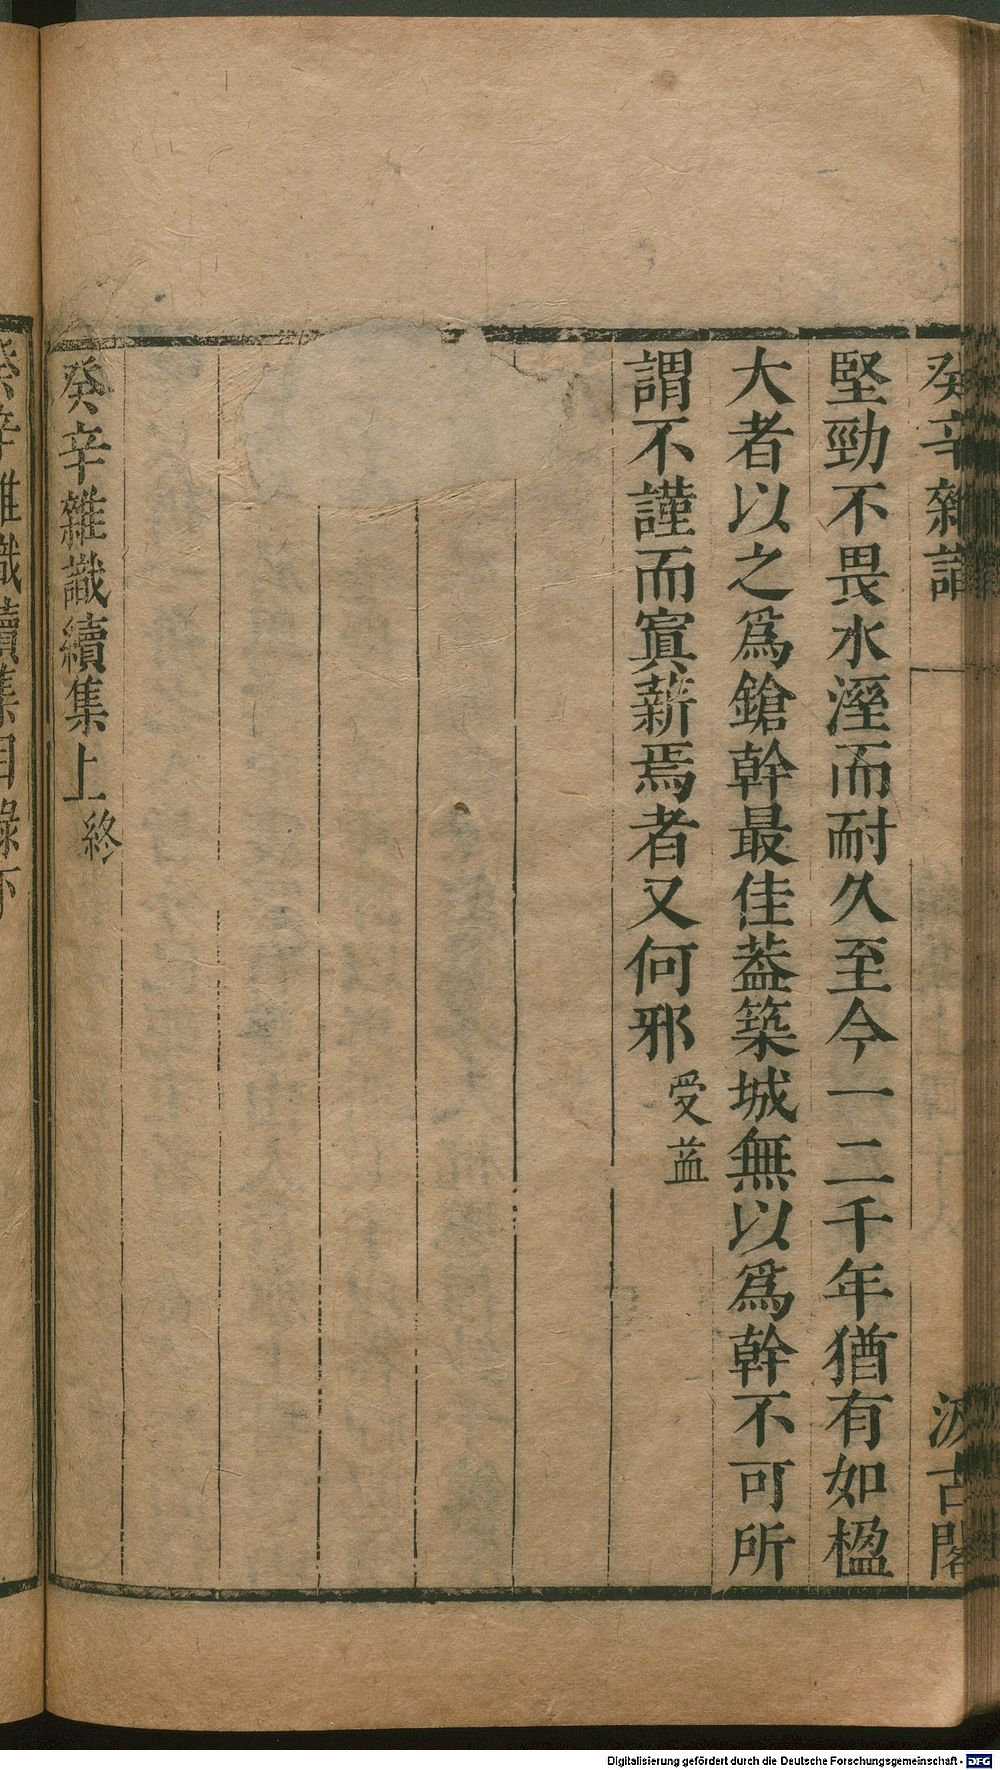 癸辛雜識
汲古閣
堅勁不畏水溼而耐久至今一二千年猶有如楹
大者以之爲鎗幹最佳葢築城無以爲幹不可所
謂不謹而寘薪焉者又何邪
受益
癸辛雜識續集上
終
癸辛雜識續集目錄下
Digitalisierung gefördert durch die Deutsche Forschungsgemeinschaft - DFG